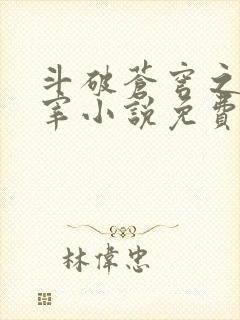 斗破苍穹之
宰小說免費
林偉忠